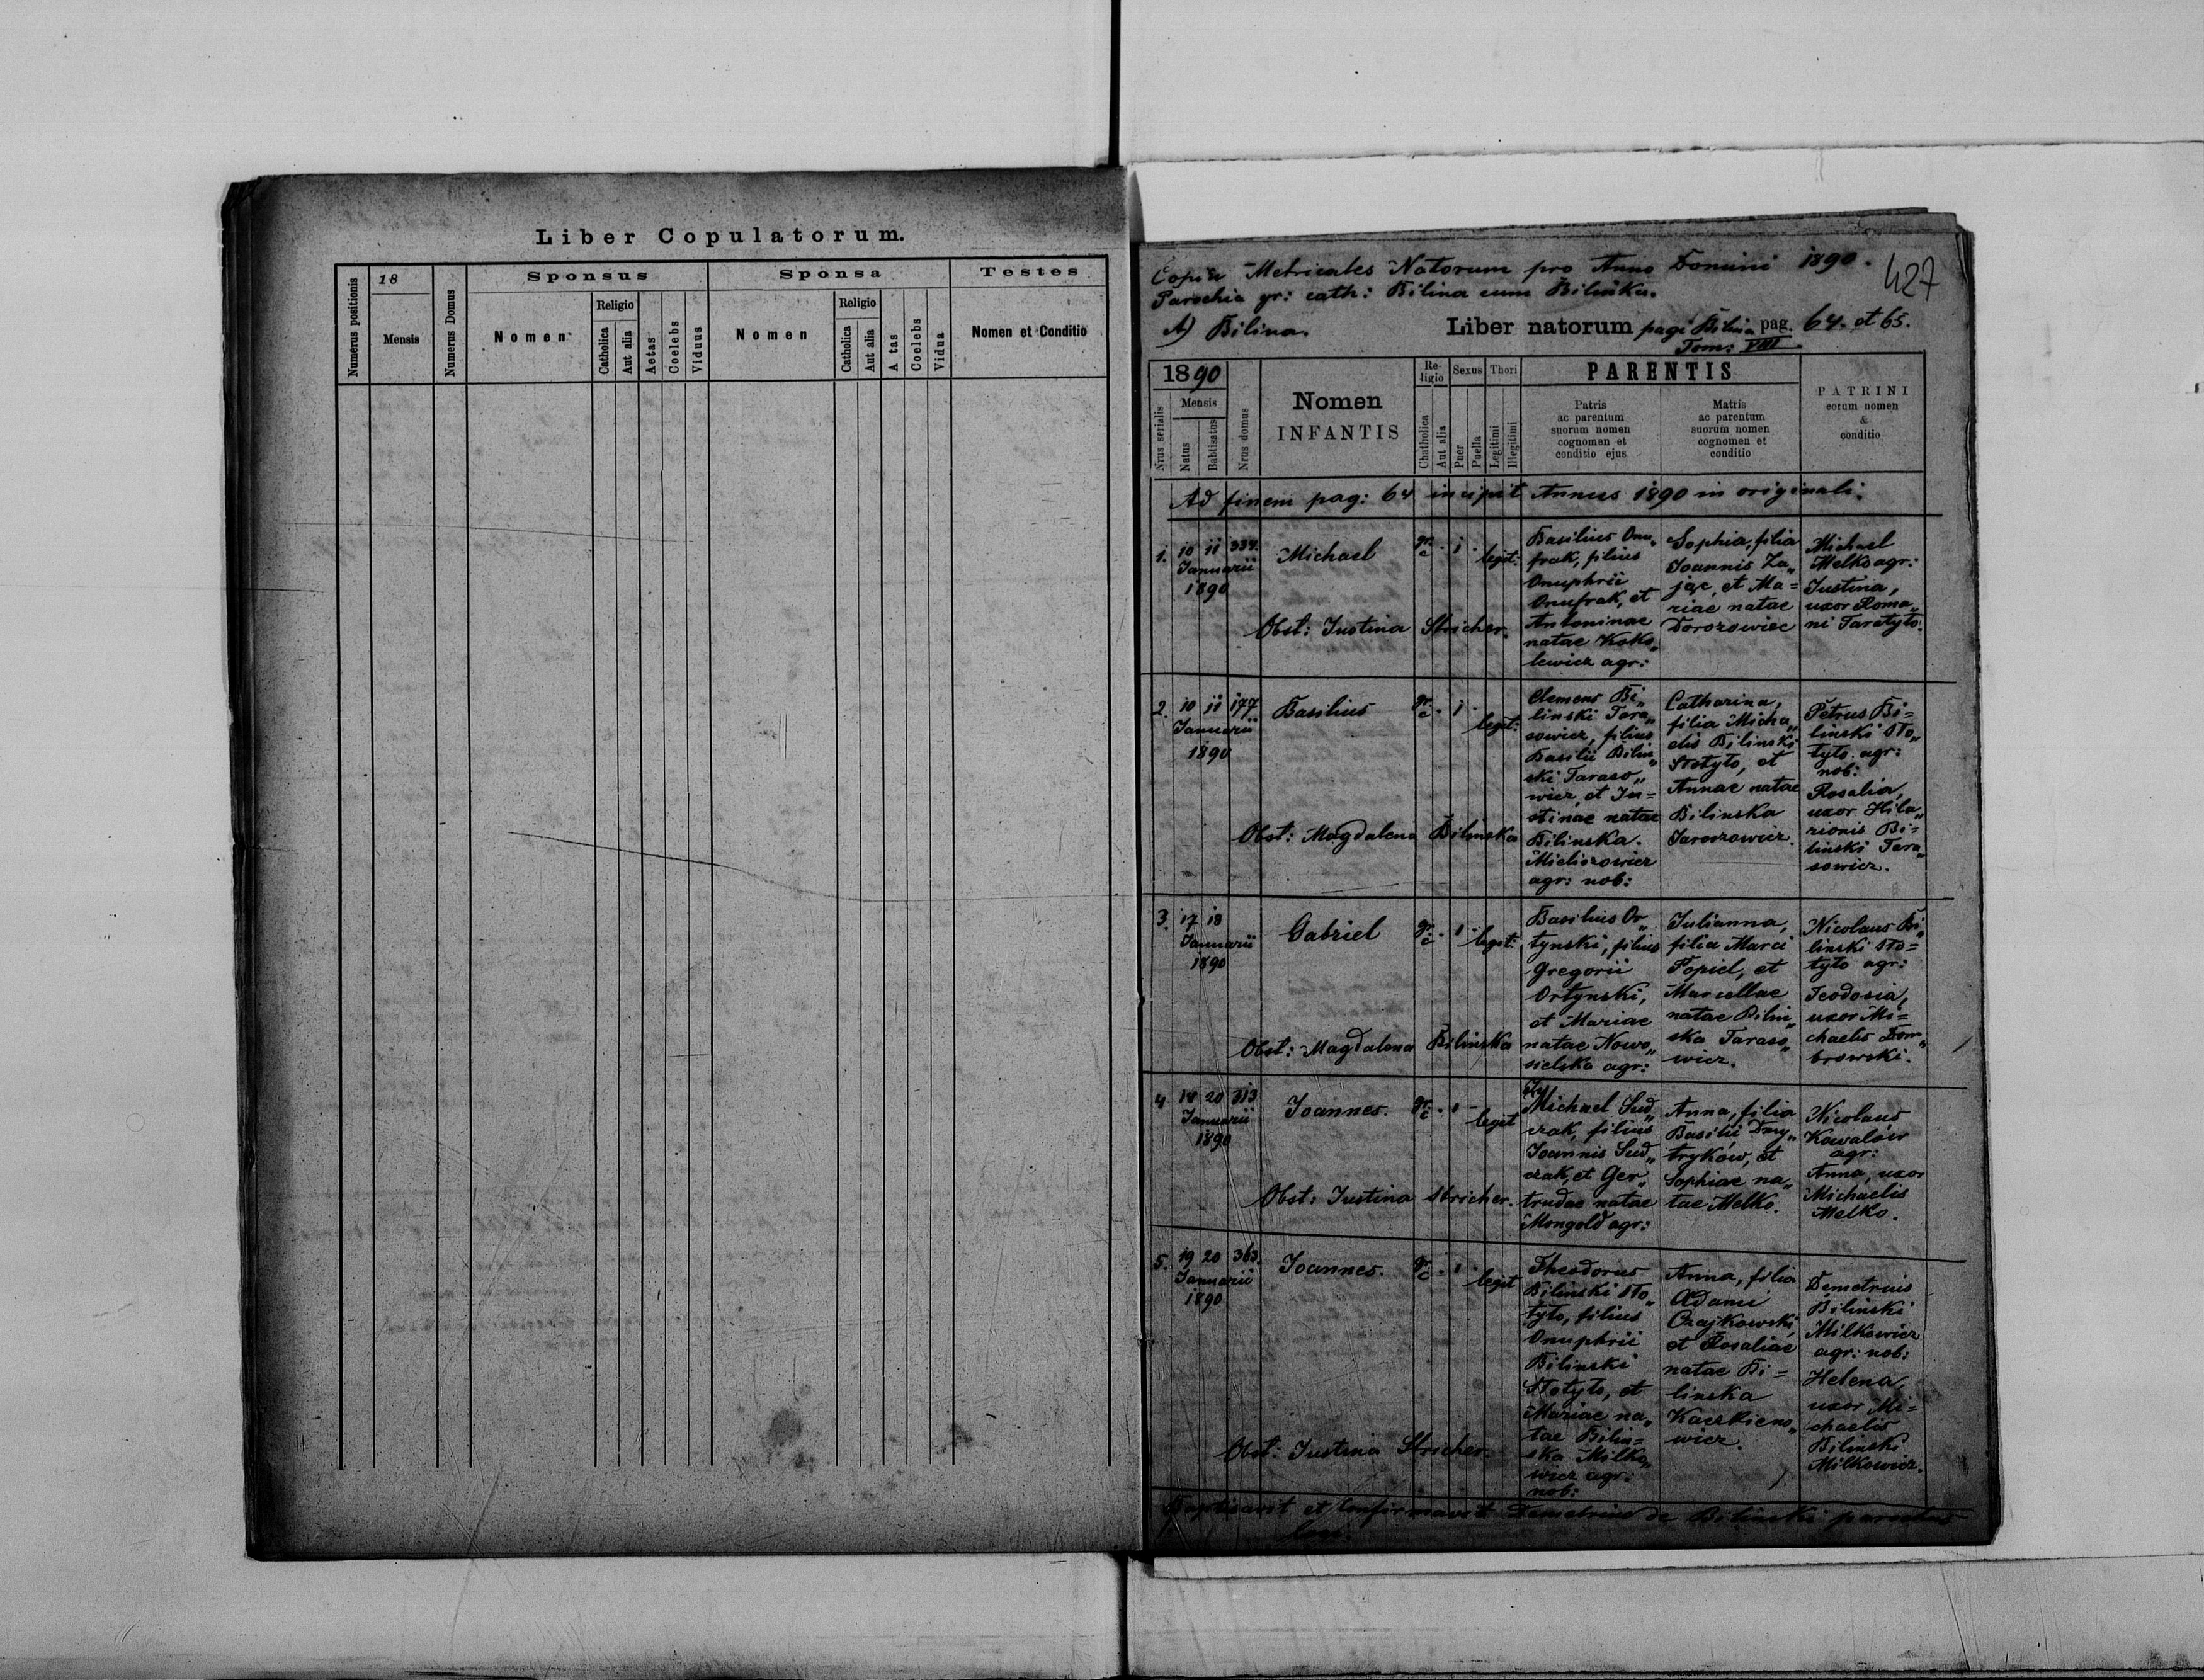 Liber Copulatorum.
Numerus positionis
18
Mensis
Numerus Domus
Sponsus
Nomen
Religio
Catholica
Aut alia
Aetas
Coelebs
Viduus
Sponsa
Nomen
Religio
Catholica
Aut alia
A tas
Coelebs
Vidua
Testes
Nomen et Conditio
Copia Metricales Natorum pro Anno Domini 1890.
427
Parochia gr: cath: Bilina cum Bilinka.
A) Bilina.
Liber natorum pagi Bilina pag. 64. et 65.
Tom: VIII
1890
Nrus serialis
Mensis
Natus
Babtisatus
Nrus domus
Nomen
INFANTIS
Re-
ligio
Chatholica
Aut alia
Sexus
Puer
Puella
Thori
Legitimi
Illegitimi
PARENTIS
Patris
ac parentum
suorum nomen
cognomen et
conditio ejus
Matris
ac parentum
suorum nomen
cognomen et
conditio
PATRINI
eorum nomen
&
conditio
Ad finem pag: 64 incipit Annus 1890 in originali.
1. 10 11 334.
Januarii
1890
Michael
gr. c. - 1 - legit:
Obst: Justina Stricher.
Basilius Onu„
frak, filius
Onuphrii
Onufrak, et
Antoninae
natae Koko„
lewicz agr:
Sophia, filia
Joannis Za„
jąc, et Ma=
riae natae
Dorozowiec
Michael
Melko agr:
Justina,
uxor Roma„
ni Taratyto.
2. 10 11 177
Januarii
1890
Basilius
gr. c. - 1 - legit:
Obst: Magdalena Bilinska
Clemens Bi„
linski Tara„
sowicz, filius
Basilii Bilin„
ski Taraso„
wicz, et Ju=
stinae natae
Bilinska.
Mieliszowicz
agr: nob:
Catharina,
filia Micha„
elis Bilinski
Stotyto, et
Annae natae
Bilinska
Jaroszowicz.
Petrus Bi=
linski Sto„
tyto agr:
nob:
Rosalia,
uxor Hila„
rionis Bi=
linski Tara„
sowicz.
3. 17 18
Januarii
1890
Gabriel
gr. c. - 1 - legit:
Obst: Magdalena Bilinska
Basilius Or„
tynski, filius
Gregorii
Ortynski,
et Mariae
natae Nowo„
sielska agr:
Julianna,
filia Marci
Popiel, et
Marcellae
natae Bilin„
ska Taraso„
wicz.
Nicolaus Bi„
linski Sto=
tyto agr:
Teodosia,
uxor Mi=
chaelis Dom„
browski.
4 18 20 313
Januarii
1890
Joannes.
gr. c. - 1 - legit
Obst: Justina Stricher.
Michael Sud„
czak, filius
Joannis Sud„
czak, et Ger„
trudae natae
Mongold agr:
Anna, filia
Basilii Dmy„
tryków, et
Sophiae na„
tae Melko.
Nicolaus
Kowalów
agr:
Anna, uxor
Michaelis
Melko.
5. 19 20 363.
Januarii
1890
Joannes.
gr. c. - 1 - legit
Obst: Justina Stricher.
Theodorus
Bilinski Sto„
tyto, filius
Onuphrii
Bilinski
Stotyto, et
Mariae na„
tae Bilin=
ska Milko„
wicz agr:
nob:
Anna, filia
Adami
Czajkowski,
et Rosaliae
natae Bi=
linska
Kaczkieno„
wicz.
Demetrius
Bilinski
Milkowicz
agr: nob:
Helena,
uxor Mi=
chaelis
Bilinski
Milkowicz.
Baptisavit et Confirmavit Demetrius de Bilinski parochus